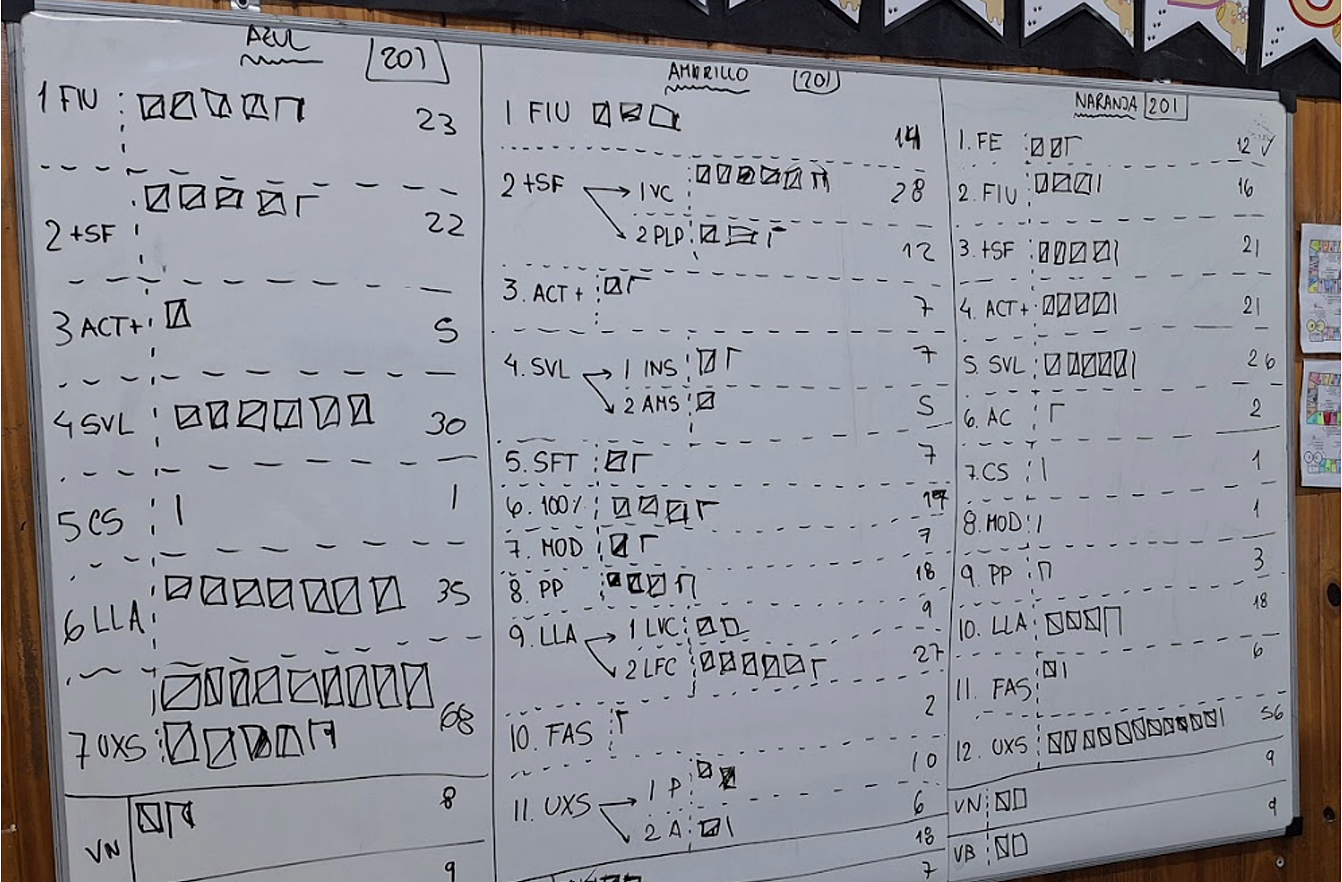 AZUL 201
1 FIU 23
2 +SF 22
3 ACT+ 5
4 SVL 30
5 CS 1
6 LLA 35
7 UXS 68
VN 8
9
AMARILLO 201
1 FIU 14
2 +SF 1 VC 28
2 PLP 12
3. ACT + 7
4. SVL 1 INS 7
2 AMS 5
5. SFT 7
6. 100% 17
7. MOD 7
8. PP 18
9. LLA 1 LVC 9
2 LFC 27
10. FAS 2
11. UXS 1 P 10
2 A 6
18
7
NARANJA 201
1. FE 12
2. FIU 16
3. +SF 21
4. ACT+ 21
5. SVL 26
6. AC 2
7. CS 1
8. MOD 1
9. PP 3
10. LLA 18
11. FAS 6
12. UXS 56
VN 9
VB 9